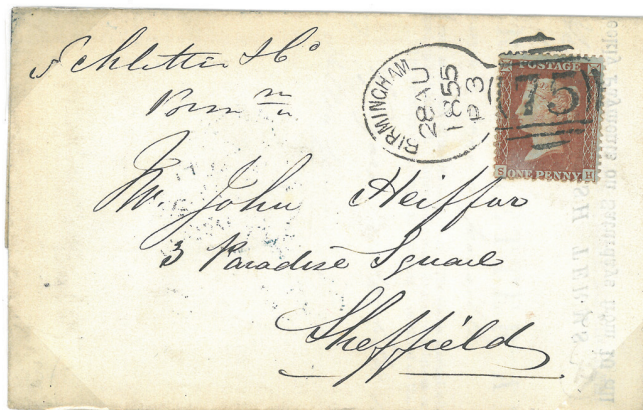 F Schlotter & Co
BIRMINGHAM
28 AU
1855
P 3
POSTAGE
75
S ONE PENNY H
Mr. John Heiffor
3 Paradise Square
Sheffield